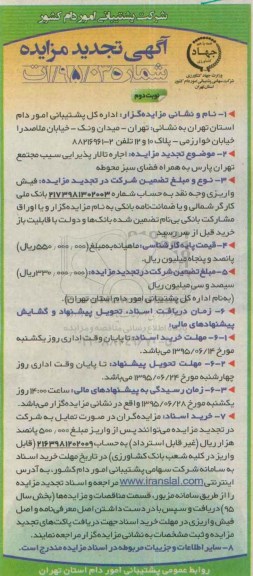 شرکت پشتیبانی امور دام کشور
آگهی تجدید مزایده
شماره ۹۵/۰۳۵/ت
نوبت دوم
وزارت جهاد کشاورزی
شرکت سهامی پشتیبانی امور دام کشور
استان تهران
۱- نام و نشانی مزایده‌گزار: اداره کل پشتیبانی امور دام
استان تهران به نشانی: تهران - میدان ونک - خیابان ملاصدرا
خیابان خوارزمی - پلاک ۱۰ و ۱۲ تلفن ۲-۸۸۲۱۶۹۶۱
۲- موضوع تجدید مزایده: اجاره تالار پذیرایی سیب مجتمع
تهران پارس به همراه فضای سبز محوطه
۳- نوع و مبلغ تضمین شرکت در تجدید مزایده: فیش
واریزی وجه نقد به حساب شماره ۲۱۷۳۹۸۱۳۰۲۰۰۳ بانک ملی
کارگر شمالی و یا ضمانت‌نامه بانکی به نام مزایده‌گزار و یا اوراق
مشارکت بانکی بی‌نام تضمین شده بانک‌ها و دولت با قابلیت باز
خرید قبل از سررسید.
۴- قیمت پایه کارشناسی: ماهیانه به مبلغ (۵۵۰٫۰۰۰٫۰۰۰ ریال)
پانصد و پنجاه میلیون ریال.
۵- مبلغ تضمین شرکت در تجدید مزایده: (۳۳۰٫۰۰۰٫۰۰۰ ریال)
سیصد و سی میلیون ریال
(به نام اداره کل پشتیبانی امور دام استان تهران).
۶- زمان دریافت اسناد، تحویل پیشنهاد و گشایش
پیشنهادهای مالی:
۱-۶- مهلت خرید اسناد: تا پایان وقت اداری روز یکشنبه
مورخ ۱۳۹۵/۰۶/۱۴ می‌باشد.
۲-۶- مهلت تحویل پیشنهاد: تا پایان وقت اداری روز
چهارشنبه مورخ ۱۳۹۵/۰۶/۲۴ می‌باشد.
۳-۶- زمان رسیدگی به پیشنهادهای مالی: ساعت ۱۴:۰۰ روز
یکشنبه مورخ ۱۳۹۵/۰۶/۲۸ واقع در نشانی مزایده‌گزار می‌باشد.
۷- خرید اسناد: مزایده‌گران در صورت تمایل به شرکت
در تجدید مزایده می‌توانند پس از واریز مبلغ ۵۰۰٫۰۰۰ پانصد
هزار ریال (غیر قابل استرداد) به حساب ۲۱۶۳۹۸۱۲۰۲۰۰۹ (قابل
واریز در کلیه شعب بانک کشاورزی) در تاریخ مهلت خرید اسناد
به سامانه شرکت سهامی پشتیبانی امور دام کشور، به آدرس
اینترنتی www.iranslal.com مراجعه و اسناد تجدید مزایده
را از طریق سامانه مزبور، قسمت مناقصات و مزایده‌ها (بخش سال
۹۵) دریافت و سپس با در دست داشتن اصل معرفی‌نامه و اصل
فیش واریزی در مهلت خرید اسناد جهت دریافت پاکت‌های تجدید
مزایده و ثبت مشخصات به نشانی مزایده‌گزار مراجعه نمایند.
۸- سایر اطلاعات و جزییات مربوطه در اسناد مزایده مندرج است.
روابط عمومی پشتیبانی امور دام استان تهران